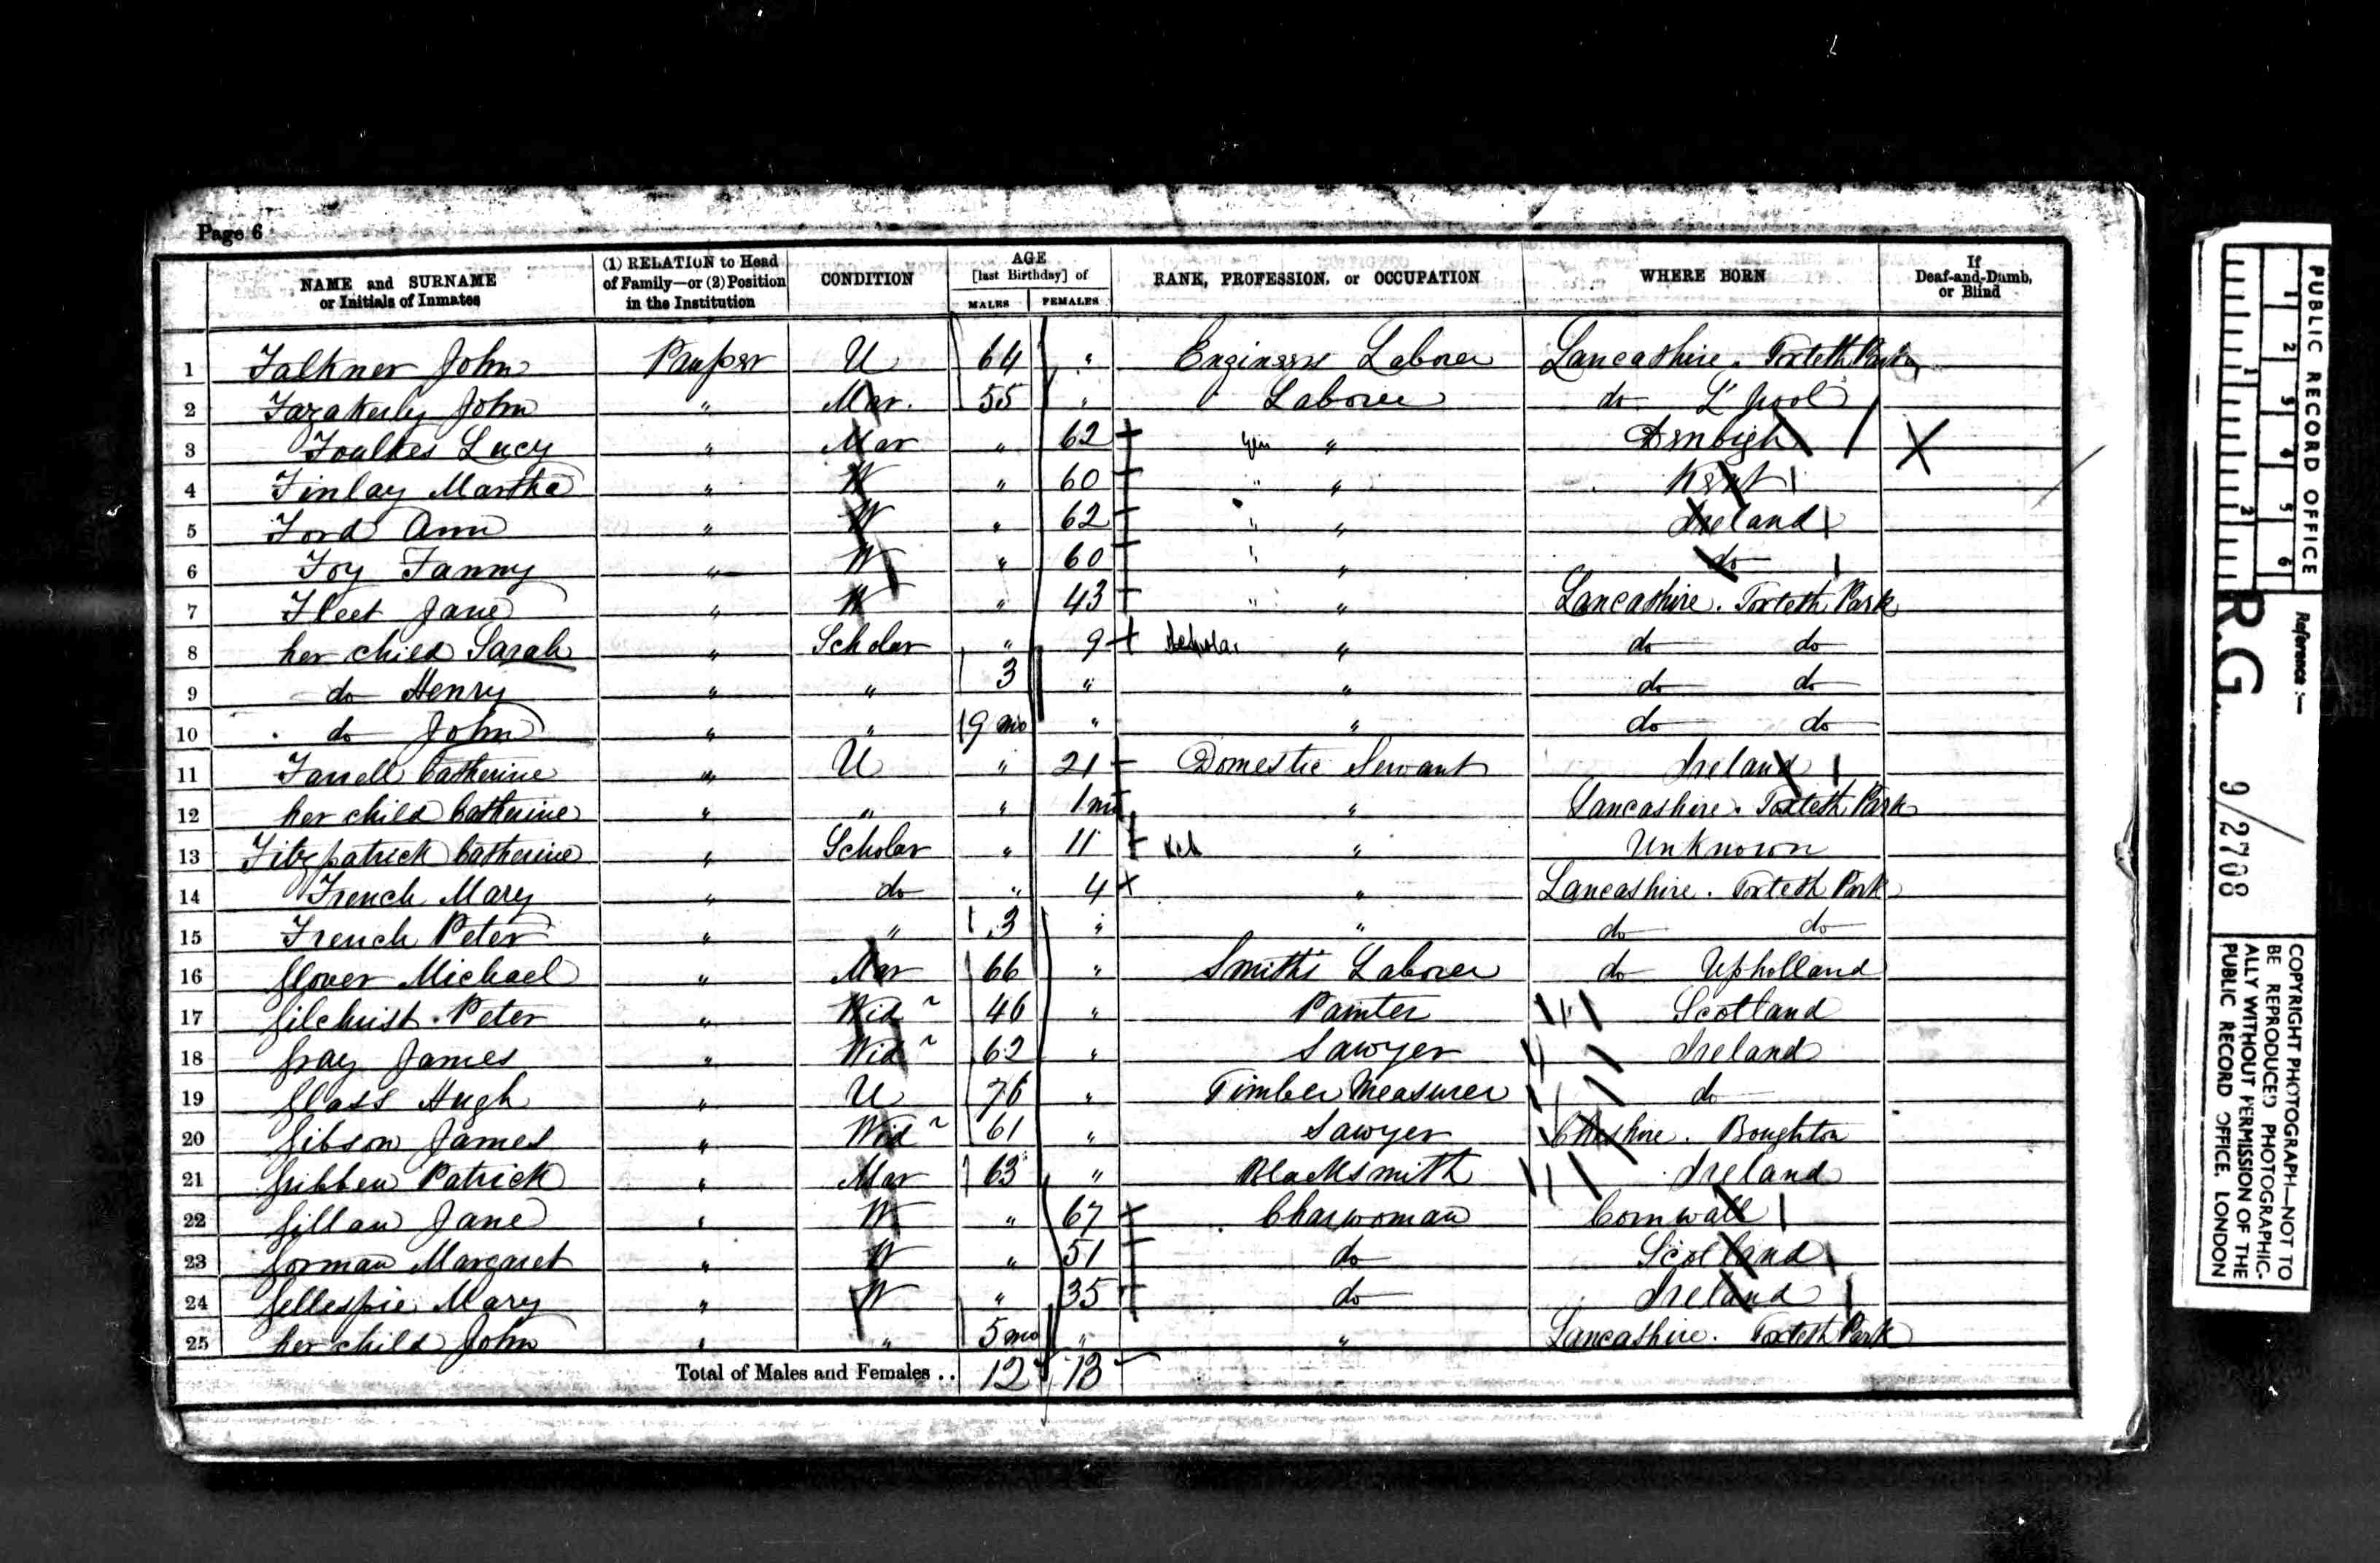 Page 6
NAME and SURNAME or Initials of Inmates (1) RELATION to Head of Family—or (2) Position in the Institution CONDITION AGE [last Birthday] of MALES FEMALES RANK, PROFESSION, or OCCUPATION WHERE BORN If Deaf-and-Dumb, or Blind
1 Falkner John Pauper U 64 " Engineers Laborer Lancashire. Toxteth Park
2 Fazakerly John " Mar. 55 " Laborer do L'pool
3 Foulkes Lucy " Mar " 62 " Denbigh
4 Finlay Martha " W " 60 " " Kent
5 Ford Ann " W " 62 " " Ireland
6 Foy Fanny " W " 60 " " do
7 Fleet Jane " W " 43 " " Lancashire. Toxteth Park
8 her child Sarah " Scholar " 9 Scholar " do do
9 do Henry " " 3 " " do do
10 do John " " 9 mo " " do do
11 Farrell Catherine " U " 21 Domestic Servant Ireland
12 her child Catherine " " " 1 mo " Lancashire. Toxteth Park
13 Fitzpatrick Catherine " Scholar " 11 Sch " Unknown
14 French Mary " do " 4 " Lancashire. Toxteth Park
15 French Peter " " 3 " " do do
16 Glover Michael " Mar 66 " Smith's Laborer do Upholland
17 Gilchrist. Peter " Wid r 46 " Painter Scotland
18 Gray James " Wid r 62 " Sawyer Ireland
19 Glass Hugh " U 76 " Timber Measurer do
20 Gibson James " Wid r 61 " Sawyer Cheshire. Boughton
21 Gribben Patrick " Mar 63 " Blacksmith Ireland
22 Gillan Jane " W " 67 Charwoman Cornwall
23 Gorman Margaret " W " 51 do Scotland
24 Gellespie Mary " W " 35 do Ireland
25 her child John " " 5 mo " " Lancashire. Toxteth Park
Total of Males and Females .. 12 13
PUBLIC RECORD OFFICE
1 2 3 4 5 6
1 2
Reference :—
R.G. 9/2708
COPYRIGHT PHOTOGRAPH—NOT TO
BE REPRODUCED PHOTOGRAPHIC-
ALLY WITHOUT PERMISSION OF THE
PUBLIC RECORD OFFICE, LONDON